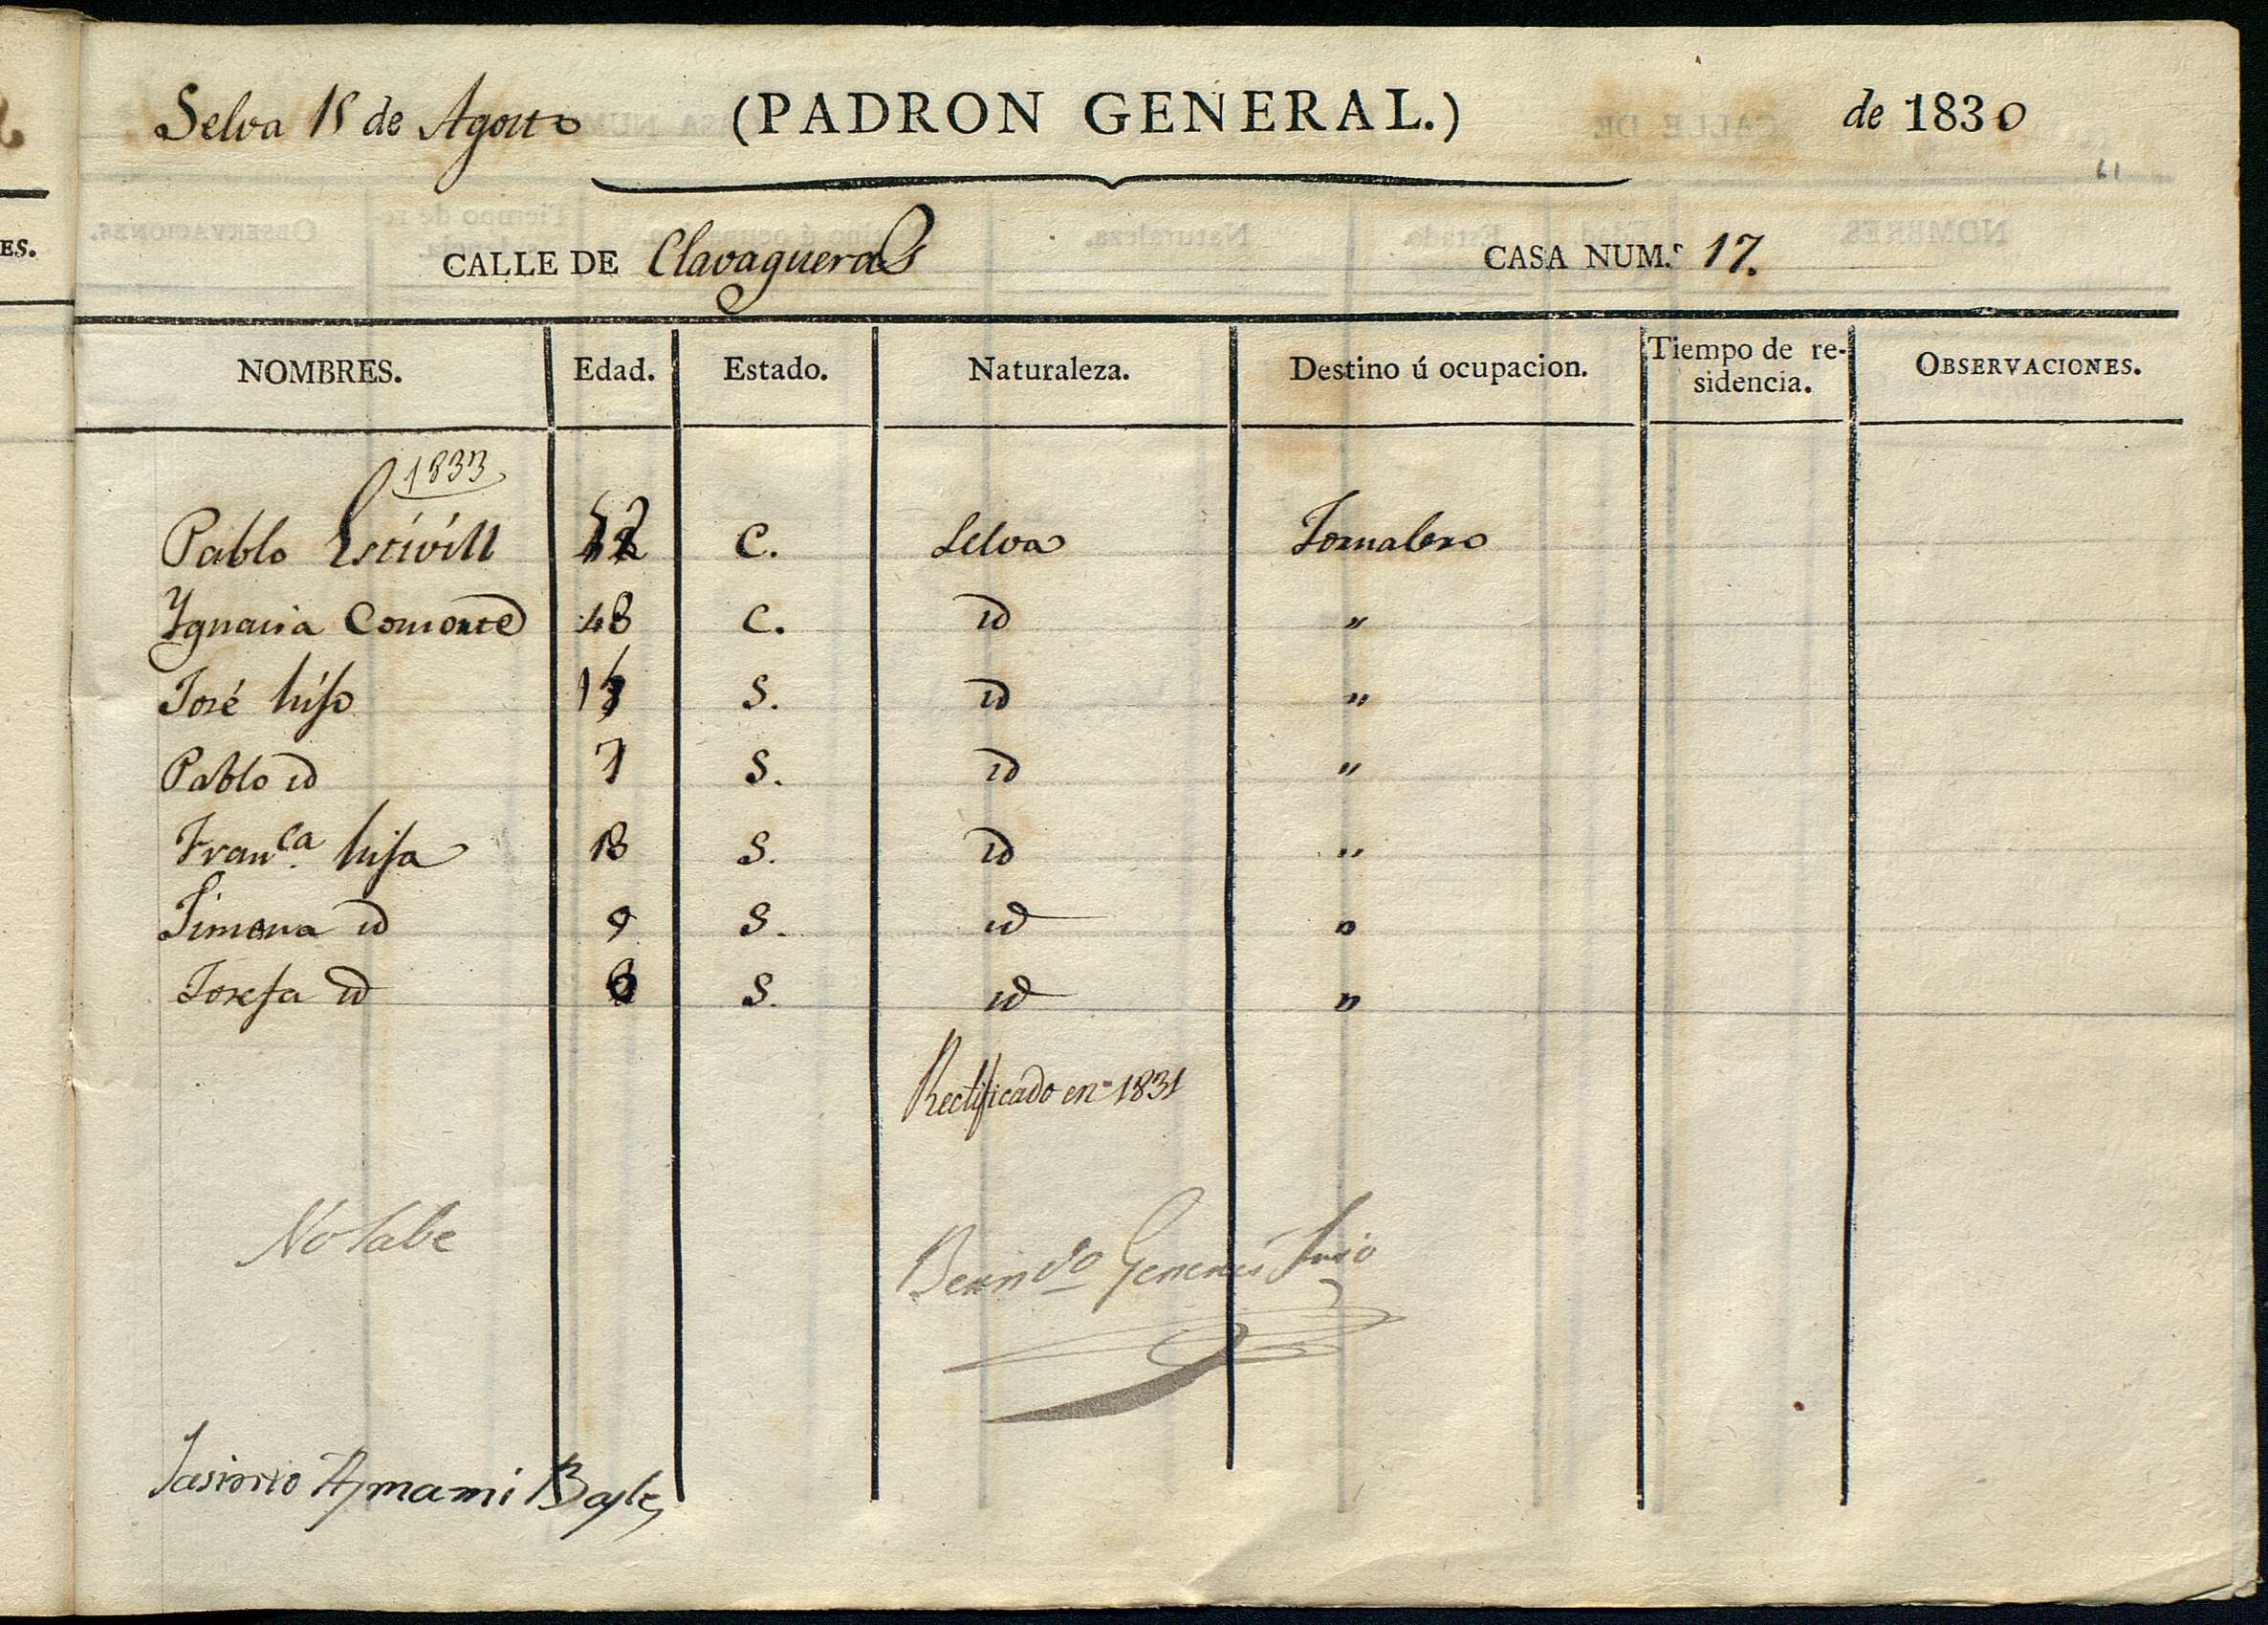 Selva 15 de Agosto (PADRON GENERAL.) de 1830
61
CALLE DE Clavagueras CASA NUM.º 17.
ES.
NOMBRES. Edad. Estado. Naturaleza. Destino ú ocupacion. Tiempo de re-sidencia. OBSERVACIONES.
1833
Pablo Estivill 52 C. Selva Jornalero
Ygnacia Comonte 48 C. id "
José hijo 15 S. id "
Pablo id 7 S. id "
Franca. hija 13 S. id "
Simona id 9 S. id "
Josefa id S. id "
Rectificado en 1831
No Sabe
Berndo Generés Srio
Jasinto Aymami Bayle